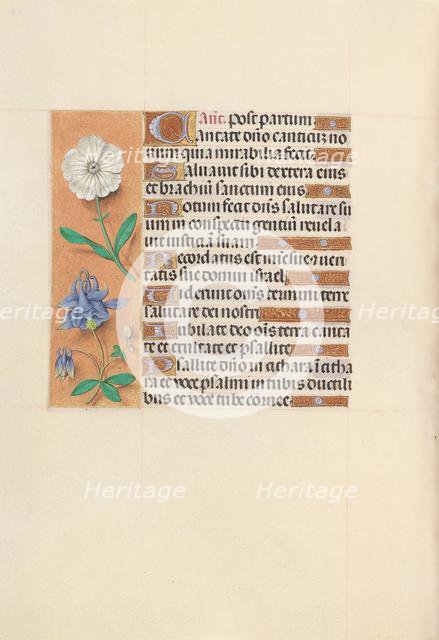 Añt. post partum
Cantate dño canticũ no
uum quia mirabilia fecit.
Saluauit sibi dextera eius
et brachiũ sanctum eius.
Notum fecit dñs salutare su
um in conspectu gentiũ reuela
uit iusticiã suam.
Recordatus est misericordie sue et ueri
tatis sue domui israel.
Viderunt oñs termini terre
salutare dei nostri.
Iubilate deo oñs terra canta
te et exultate et psallite.
Psallite dño in cithara ĩ citha
ra et uoce psalmi in tubis ductili
bus et uoce tube cornee.
Heritage
Heritage
Heritage
Heritage
Heritage
Heritage
Heritage